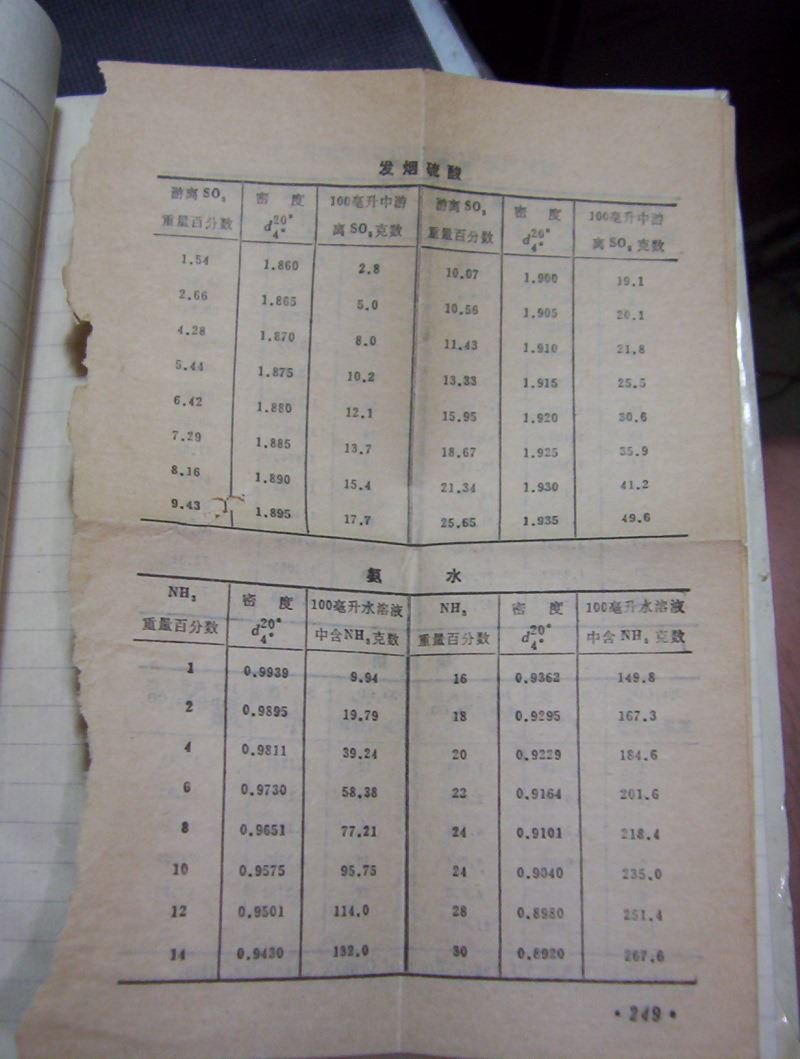 发烟硫酸
游离SO₃ 密度 100毫升中游 游离SO₃ 密度 100毫升中游
重量百分数 d₄°²⁰° 离SO₃克数 重量百分数 d₄°²⁰° 离SO₃克数
1.54 1.860 2.8 10.07 1.900 19.1
2.66 1.865 5.0 10.56 1.905 20.1
4.28 1.870 8.0 11.43 1.910 21.8
5.44 1.875 10.2 13.33 1.915 25.5
6.42 1.880 12.1 15.95 1.920 30.6
7.29 1.885 13.7 18.67 1.925 35.9
8.16 1.890 15.4 21.34 1.930 41.2
9.43 1.895 17.7 25.65 1.935 49.6
氨水
NH₃ 密度 100毫升水溶液 NH₃ 密度 100毫升水溶液
重量百分数 d₄°²⁰° 中含NH₃克数 重量百分数 d₄°²⁰° 中含NH₃克数
1 0.9939 9.94 16 0.9362 149.8
2 0.9895 19.79 18 0.9295 167.3
4 0.9811 39.24 20 0.9229 184.6
6 0.9730 58.38 22 0.9164 201.6
8 0.9651 77.21 24 0.9101 218.4
10 0.9575 95.75 24 0.9040 235.0
12 0.9501 114.0 28 0.8980 251.4
14 0.9430 132.0 30 0.8920 267.6
•249•